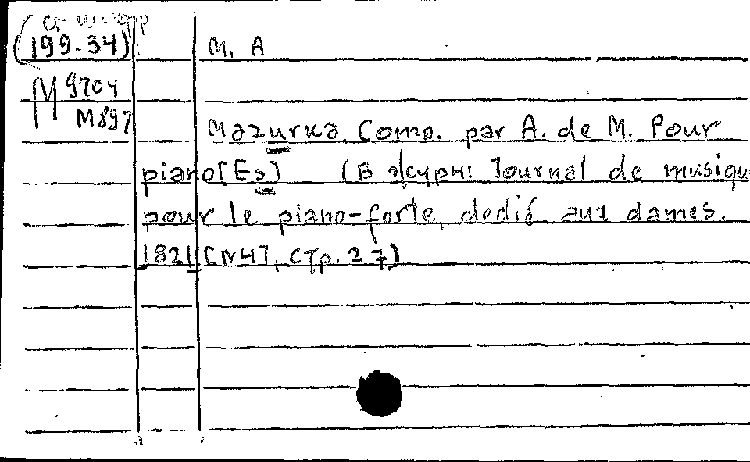 (199.34)
M. A
M 9704
M897
Mazurka Comp. par A. de M. Pour
piano [Es] (В журн: Journal de musiqu
pour le piano-forte, dedié aux dames.
1821 [N47, стр. 27)